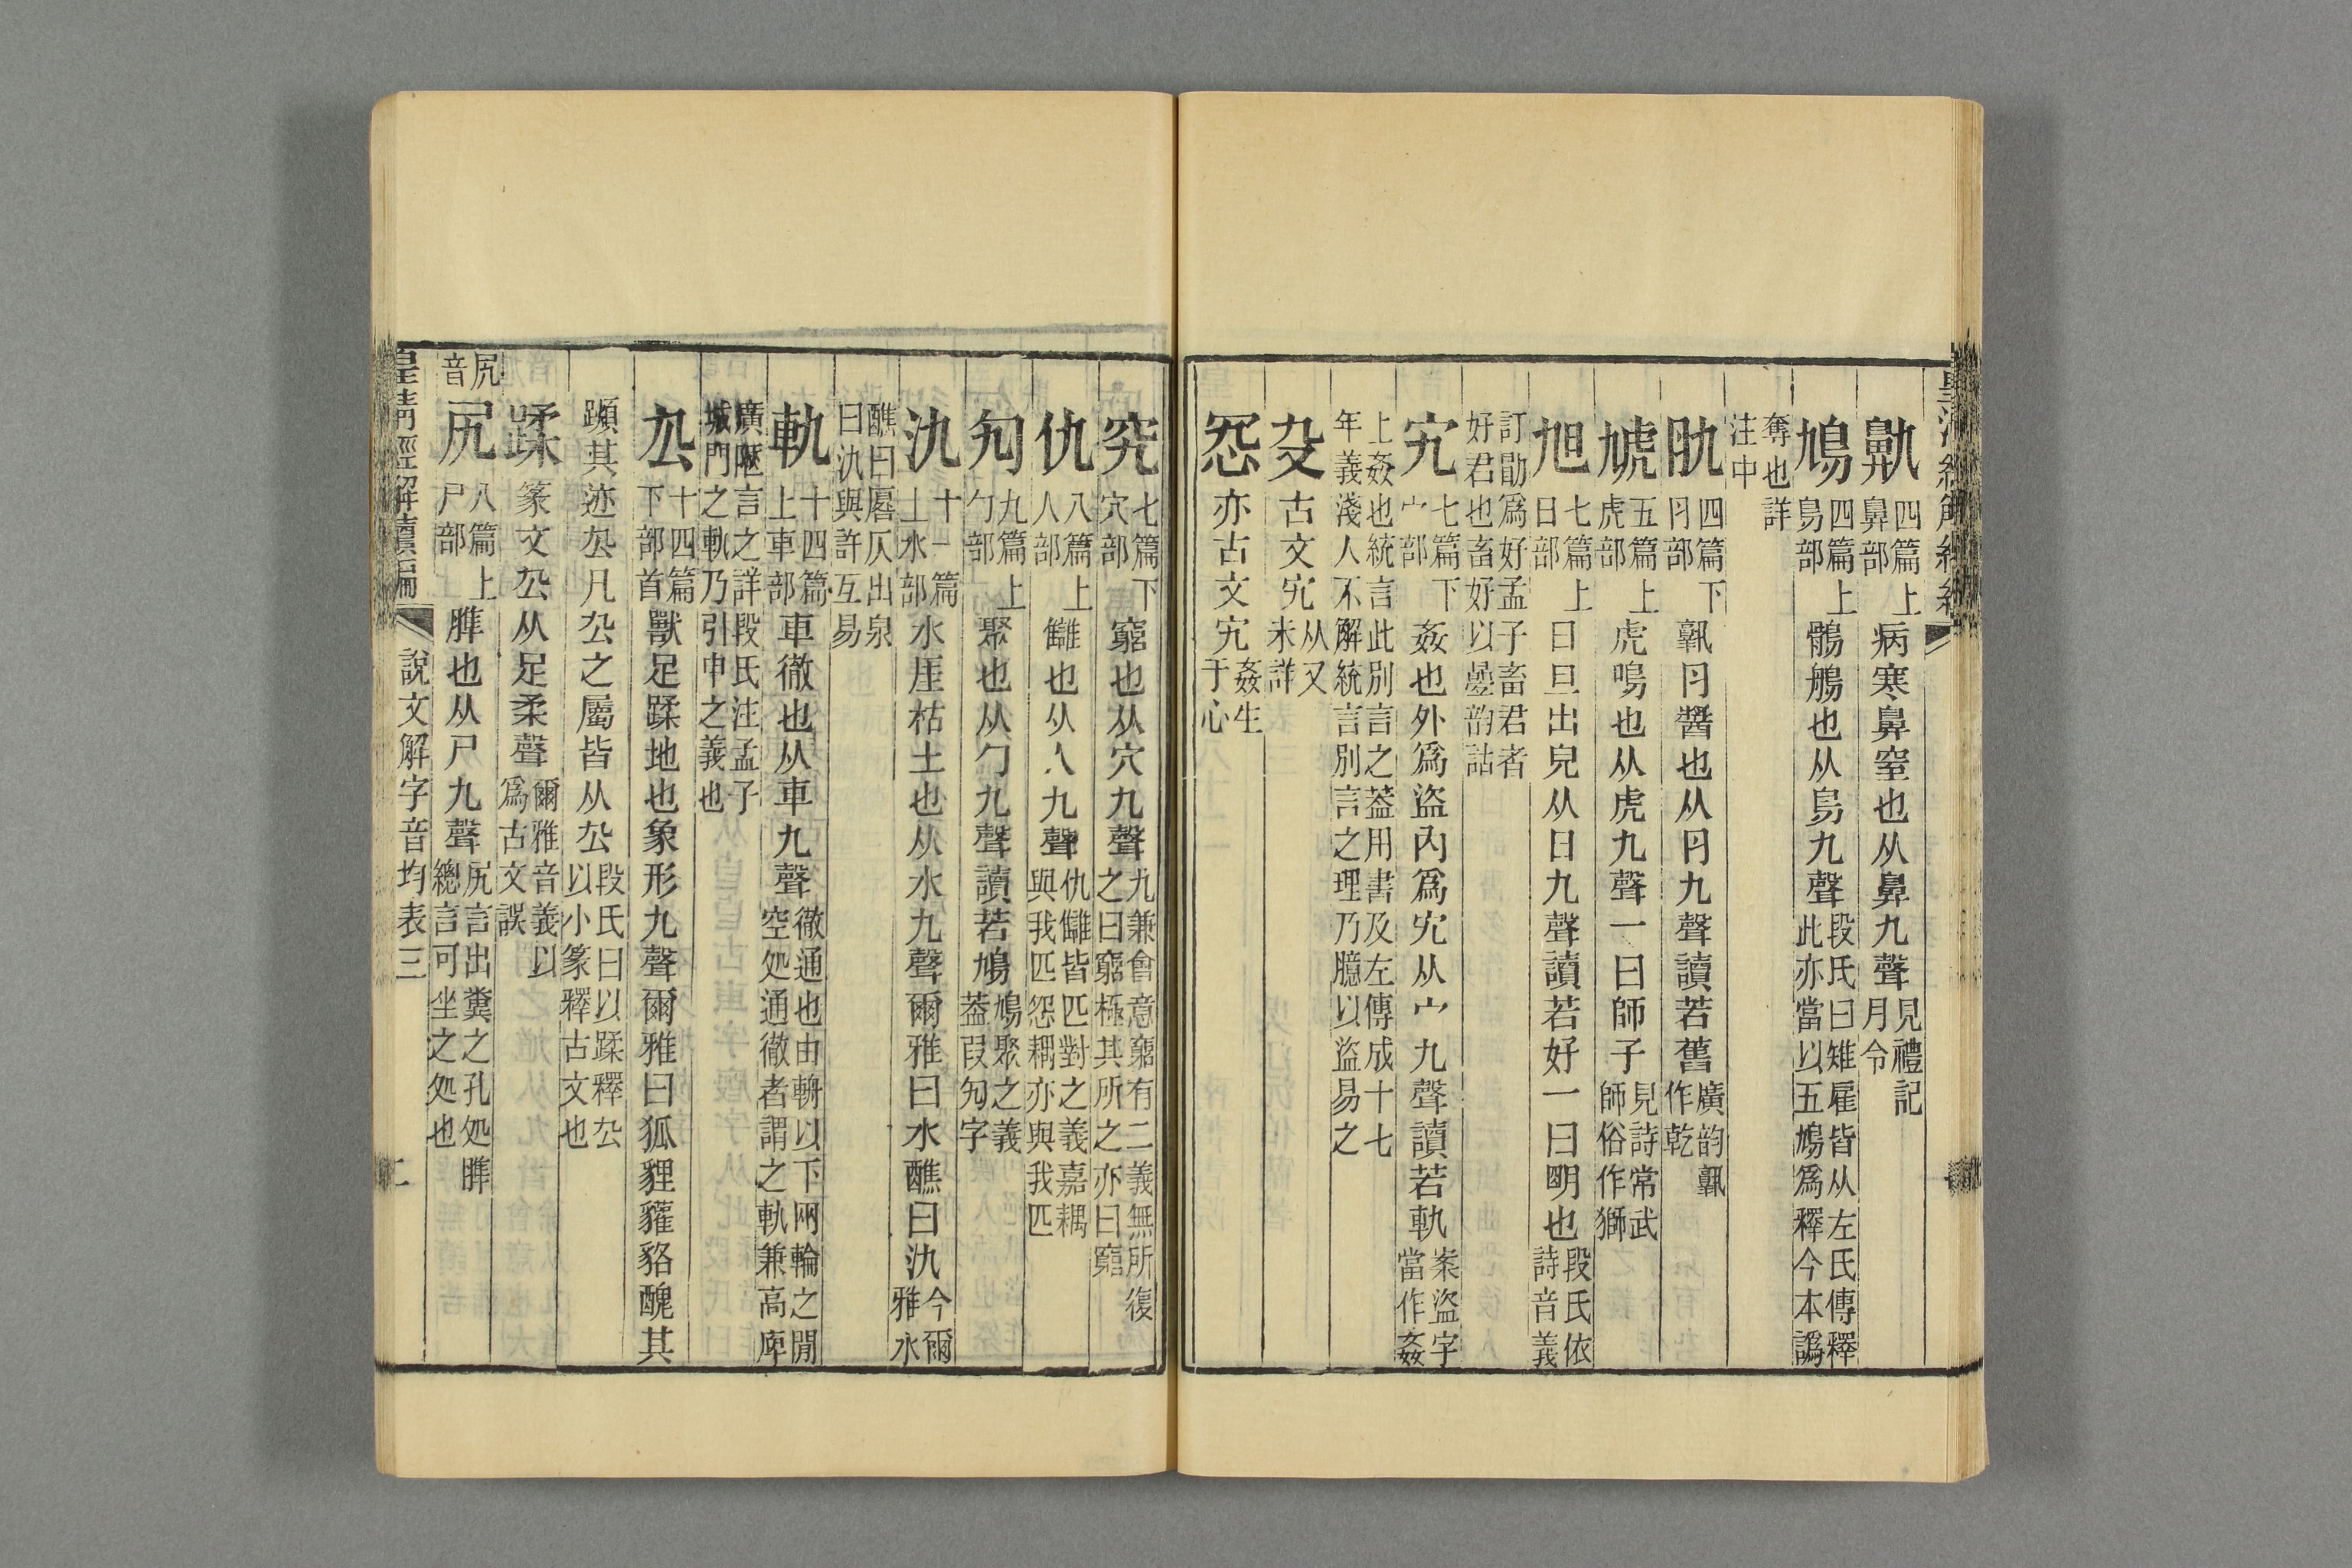 鼽四篇上鼻部病寒鼻窒也从鼻九聲見禮記月令
鳩四篇上鳥部鶻鵃也从鳥九聲段氏曰雉雇皆从左氏傳釋此亦當以五鳩爲釋今本譌
奪也詳注中
肍四篇下肉部孰肉醬也从肉九聲讀若舊廣韵孰作乾
虓五篇上虎部虎鳴也从虎九聲一曰師子見詩常武師俗作獅
旭七篇上日部日旦出皃从日九聲讀若好一曰明也段氏依詩音義
訂勖爲好孟子畜君者好君也畜好以曡韵詁
宄七篇下宀部姦也外爲盜內爲宄从宀九聲讀若軌案盜字當作姦
上姦也統言此別言之葢用書及左傳成十七年義淺人不解統言別言之理乃臆以盜易之
㕝古文宄从又未詳
𢗔亦古文宄姦生于心
究七篇下穴部窮也从穴九聲九兼會意窮有二義無所復之曰窮極其所之亦曰窮
仇八篇上人部讎也从人九聲仇讎皆匹對之義嘉耦與我匹怨耦亦與我匹
勼九篇上勹部聚也从勹九聲讀若鳩鳩聚之義葢叚勼字
氿十一篇上水部水厓枯土也从水九聲爾雅曰水醮曰氿今爾雅水
醮曰厬仄出泉曰氿與許互易
軌十四篇上車部車徹也从車九聲徹通也由輈以下兩輪之閒空処通徹者謂之軌兼高庳
廣陿言之詳段氏注孟子城門之軌乃引申之義也
厹十四篇下部首獸足蹂地也象形九聲爾雅曰狐貍貛貉醜其
蹞其迹厹凡厹之屬皆从厹段氏曰以蹂釋厹以小篆釋古文也
蹂篆文厹从足柔聲爾雅音義以爲古文誤
尻音
尻八篇上尸部脽也从尸九聲尻言出糞之孔処脽總言可坐之処也
皇清經解續編
說文解字音均表三
二